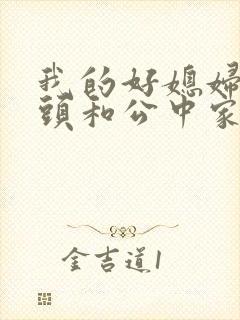 我的好媳婦
頭和公中家
金吉道1